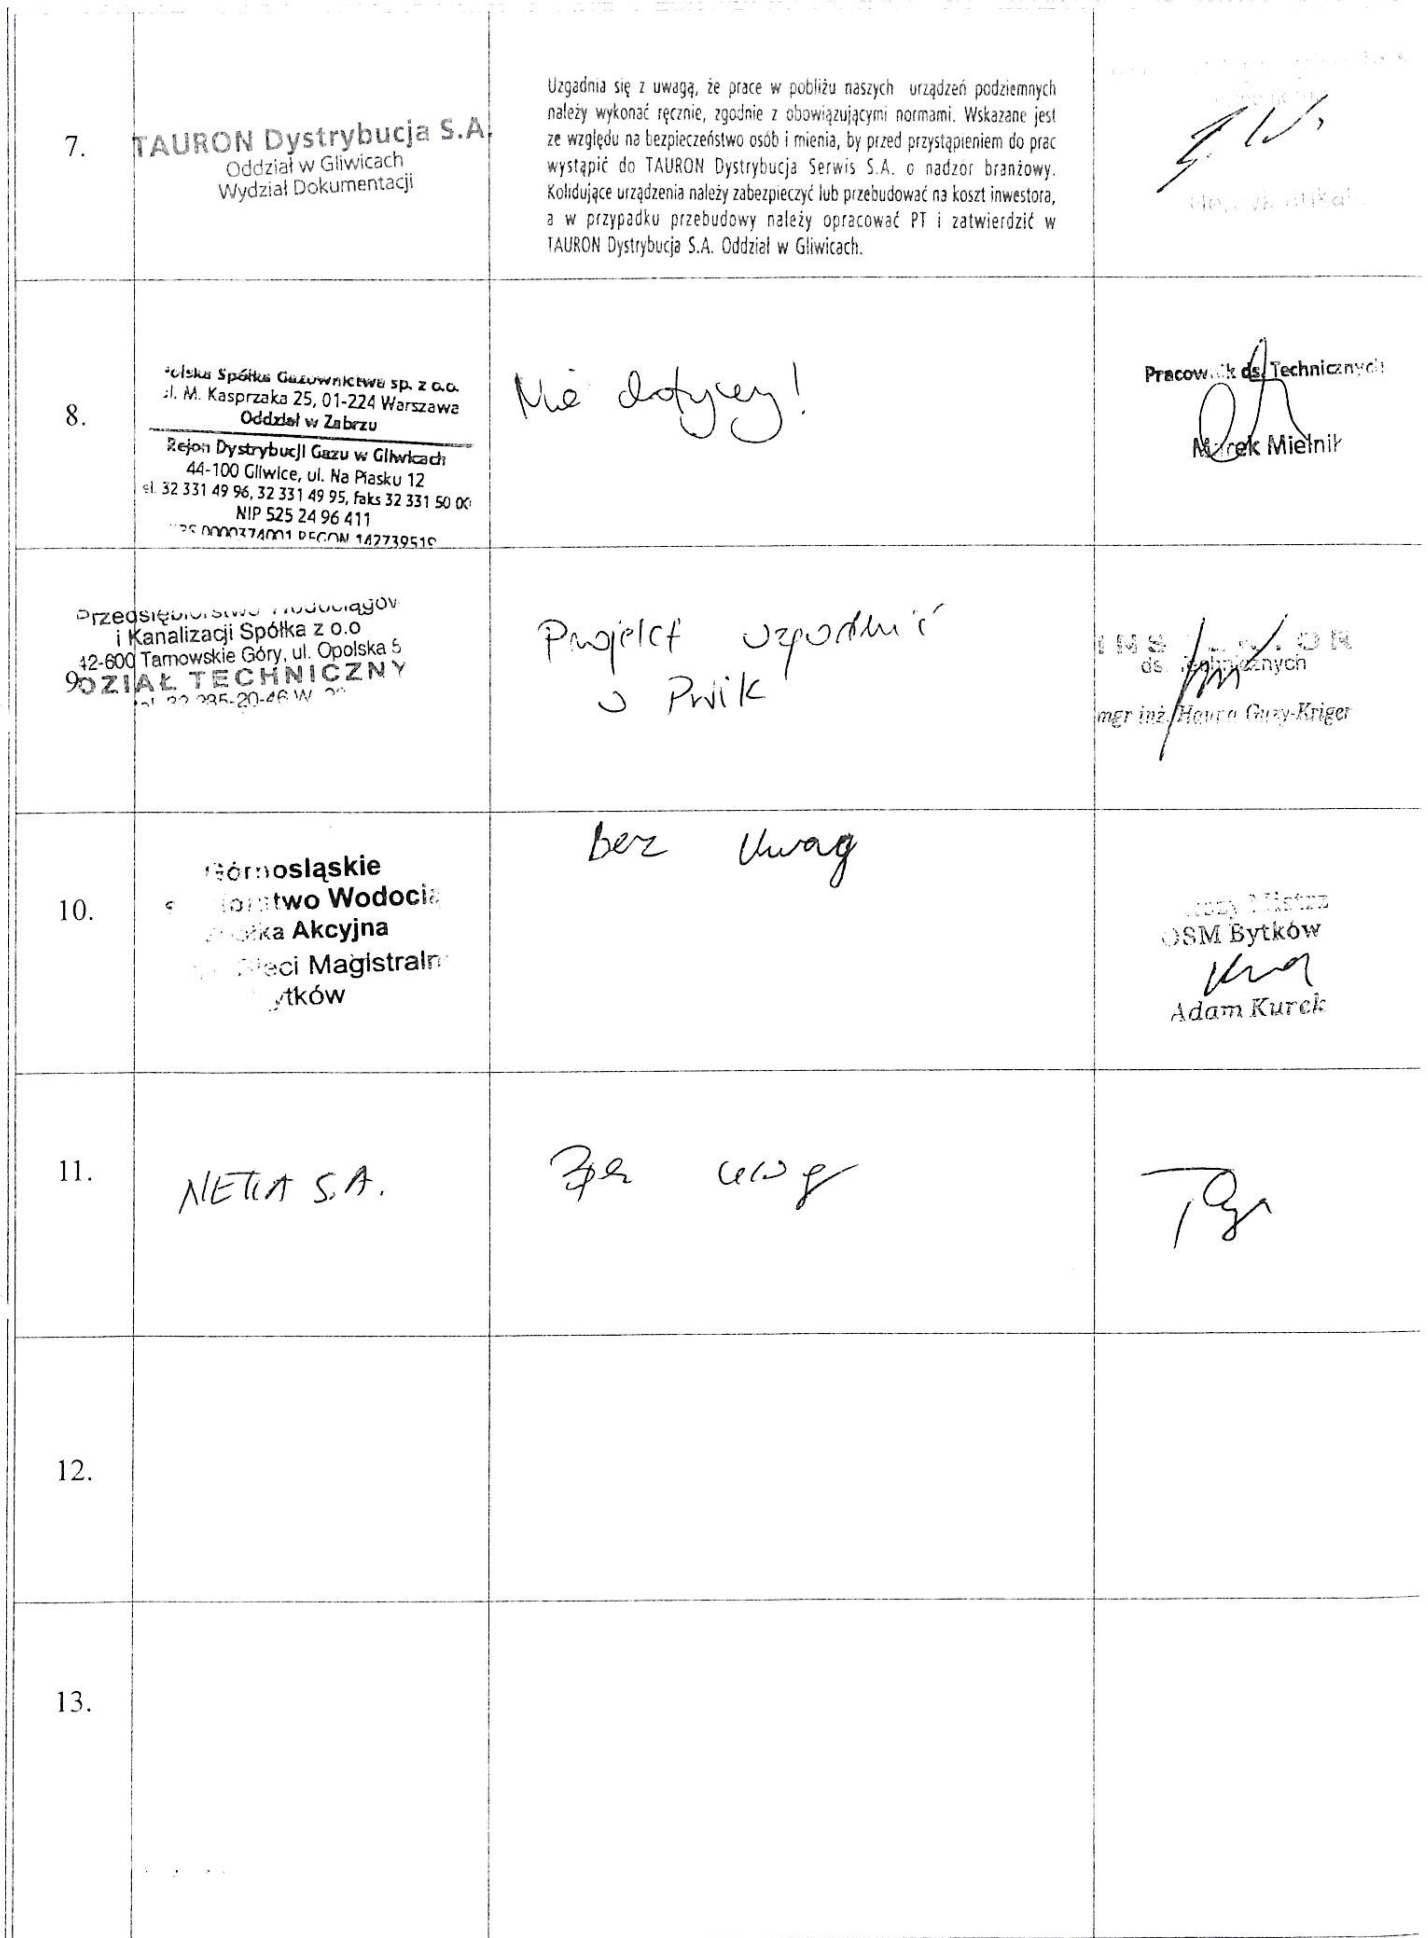 7.
TAURON Dystrybucja S.A.
Oddział w Gliwicach
Wydział Dokumentacji
Uzgadnia się z uwagą, że prace w pobliżu naszych urządzeń podziemnych
należy wykonać ręcznie, zgodnie z obowiązującymi normami. Wskazane jest
ze względu na bezpieczeństwo osób i mienia, by przed przystąpieniem do prac
wystąpić do TAURON Dystrybucja Serwis S.A. o nadzór branżowy.
Kolidujące urządzenia należy zabezpieczyć lub przebudować na koszt inwestora,
a w przypadku przebudowy należy opracować PT i zatwierdzić w
TAURON Dystrybucja S.A. Oddział w Gliwicach.
8.
Spółka Gazownictwa sp. z o.o.
M. Kasprzaka 25, 01-224 Warszawa
Oddział w Zabrzu
Rejon Dystrybucji Gazu w Gliwicach
44-100 Gliwice, ul. Na Piasku 12
32 331 49 96, 32 331 49 95, faks 32 331 50 00
NIP 525 24 96 411
0000374001 REGON 142739519
Nie dotyczy!
Pracownik ds. Technicznych
Marek Mielnik
9.
i Kanalizacji Spółka z o.o
42-600 Tarnowskie Góry, ul. Opolska 5
DZIAŁ TECHNICZNY
Projekt uzgodnić
w PWiK
ds. Technicznych
mgr inż. Guzy-Kriger
10.
Górnośląskie
Akcyjna
Magistraln
ytków
bez uwag
Mistrz
OSM Bytków
Adam Kurek
11.
NETIA S.A.
12.
13.